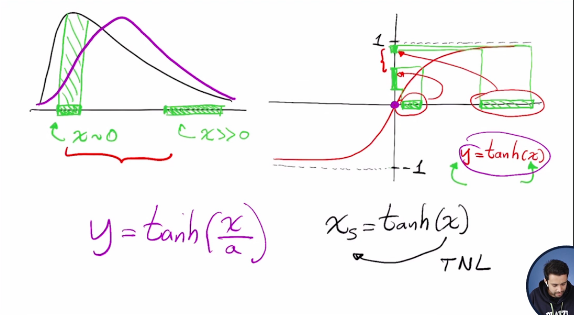 1
x~0
x>>0
y=tanh(x)
-1
y=tanh(x/a)
x_s=tanh(x)
TNL